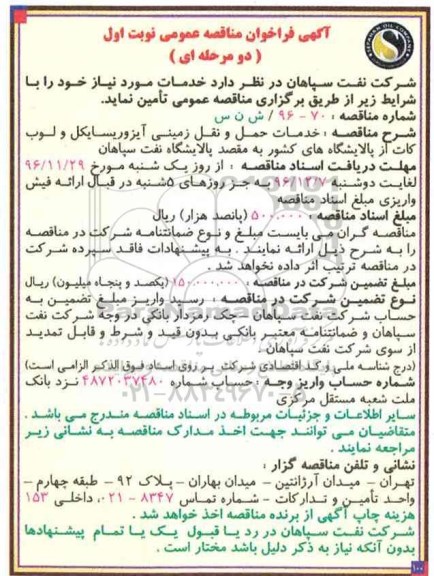 آگهی فراخوان مناقصه عمومی نوبت اول
( دو مرحله ای )
شرکت نفت سپاهان در نظر دارد خدمات مورد نیاز خود را با
شرایط زیر از طریق برگزاری مناقصه عمومی تأمین نماید.
شماره مناقصه : ۷۰ - ۹۶ / ش ن س
شرح مناقصه : خدمات حمل و نقل زمینی آیزوریسایکل و لوب
کات از پالایشگاه های کشور به مقصد پالایشگاه نفت سپاهان
مهلت دریافت اسناد مناقصه : از روز یک شنبه مورخ ۹۶/۱۱/۲۹
لغایت دوشنبه ۹۶/۱۲/۷ به جز روزهای ۵شنبه در قبال ارائه فیش
واریزی مبلغ اسناد مناقصه
مبلغ اسناد مناقصه : ۵۰۰.۰۰۰ (پانصد هزار) ریال
مناقصه گران می بایست مبلغ و نوع ضمانتنامه شرکت در مناقصه
را به شرح ذیل ارائه نمایند . به پیشنهادات فاقد سپرده شرکت
در مناقصه ترتیب اثر داده نخواهد شد .
مبلغ تضمین شرکت در مناقصه : ۱۵۰.۰۰۰.۰۰۰ (یکصد و پنجاه میلیون) ریال
نوع تضمین شرکت در مناقصه : رسید واریز مبلغ تضمین به
حساب شرکت نفت سپاهان - چک رمزدار بانکی در وجه شرکت نفت
سپاهان و ضمانتنامه معتبر بانکی بدون قید و شرط و قابل تمدید
از سوی شرکت نفت سپاهان
(درج شناسه ملی و کد اقتصادی شرکت بر روی اسناد فوق الذکر الزامی است)
شماره حساب واریز وجه : حساب شماره ۴۸۷۲۰۳۷۴۸۰ نزد بانک
ملت شعبه مستقل مرکزی
سایر اطلاعات و جزئیات مربوطه در اسناد مناقصه مندرج می باشد .
متقاضیان می توانند جهت اخذ مدارک مناقصه به نشانی زیر
مراجعه نمایند .
نشانی و تلفن مناقصه گزار :
تهران - میدان آرژانتین - میدان بهاران - پلاک ۹۲ - طبقه چهارم -
واحد تأمین و تدارکات - شماره تماس ۸۳۴۷ - ۰۲۱، داخلی ۱۵۳
هزینه چاپ آگهی از برنده مناقصه اخذ خواهد شد .
شرکت نفت سپاهان در رد یا قبول یک یا تمام پیشنهادها
بدون آنکه نیاز به ذکر دلیل باشد مختار است .
۱۰۰